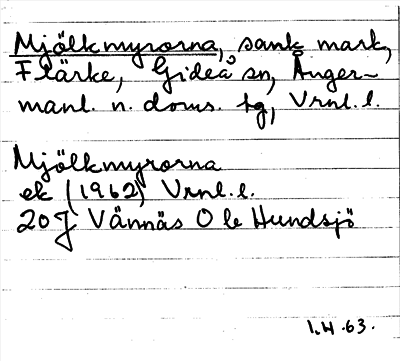 Mjölkmyrorna, sank mark,
Flärke, Gideå sn, Ånger-
manl. n. doms. tg, Vrnl. l.
Mjölkmyrorna
ek (1962) Vrnl. l.
20J Vännäs O b Hundsjö
I.H.63.